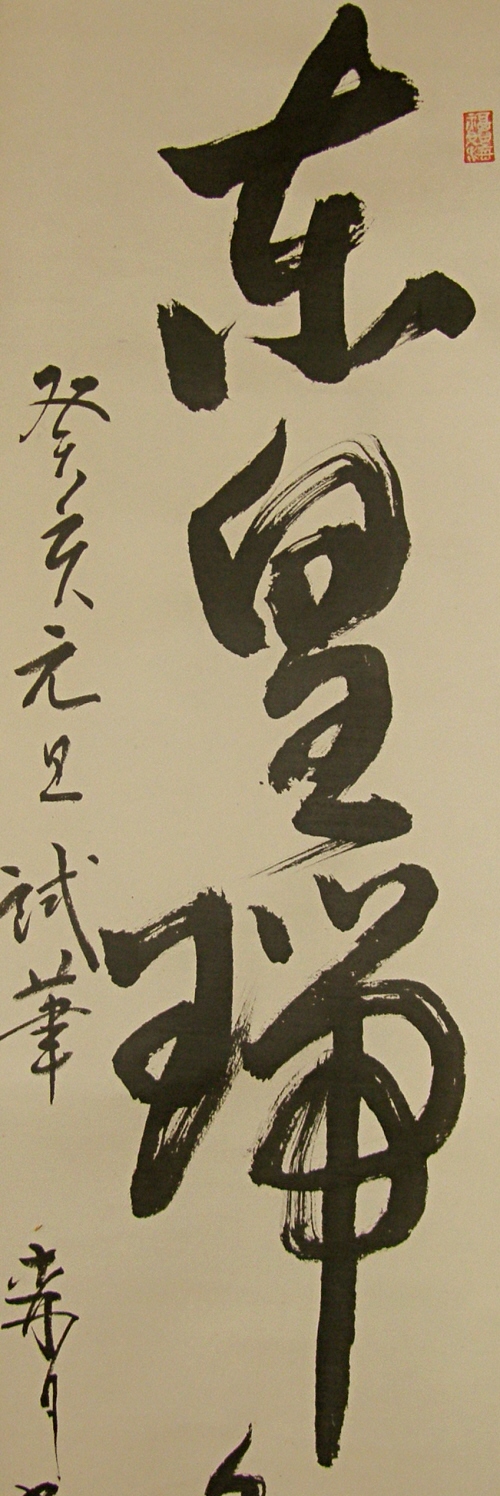 東皇瑞
癸亥元旦試筆